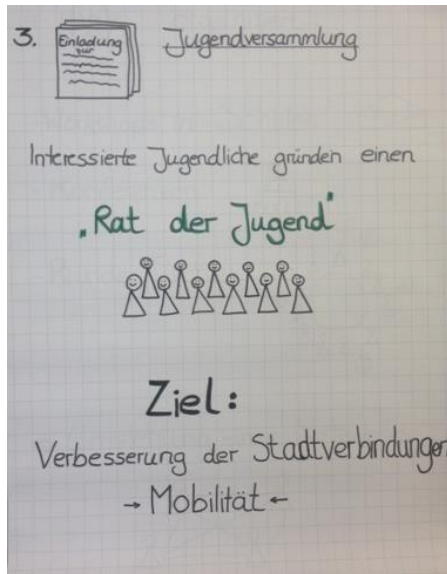 3. Einladung zur Jugendversammlung
Interessierte Jugendliche gründen einen
„Rat der Jugend"
Ziel:
Verbesserung der Stadtverbindungen
→ Mobilität ←